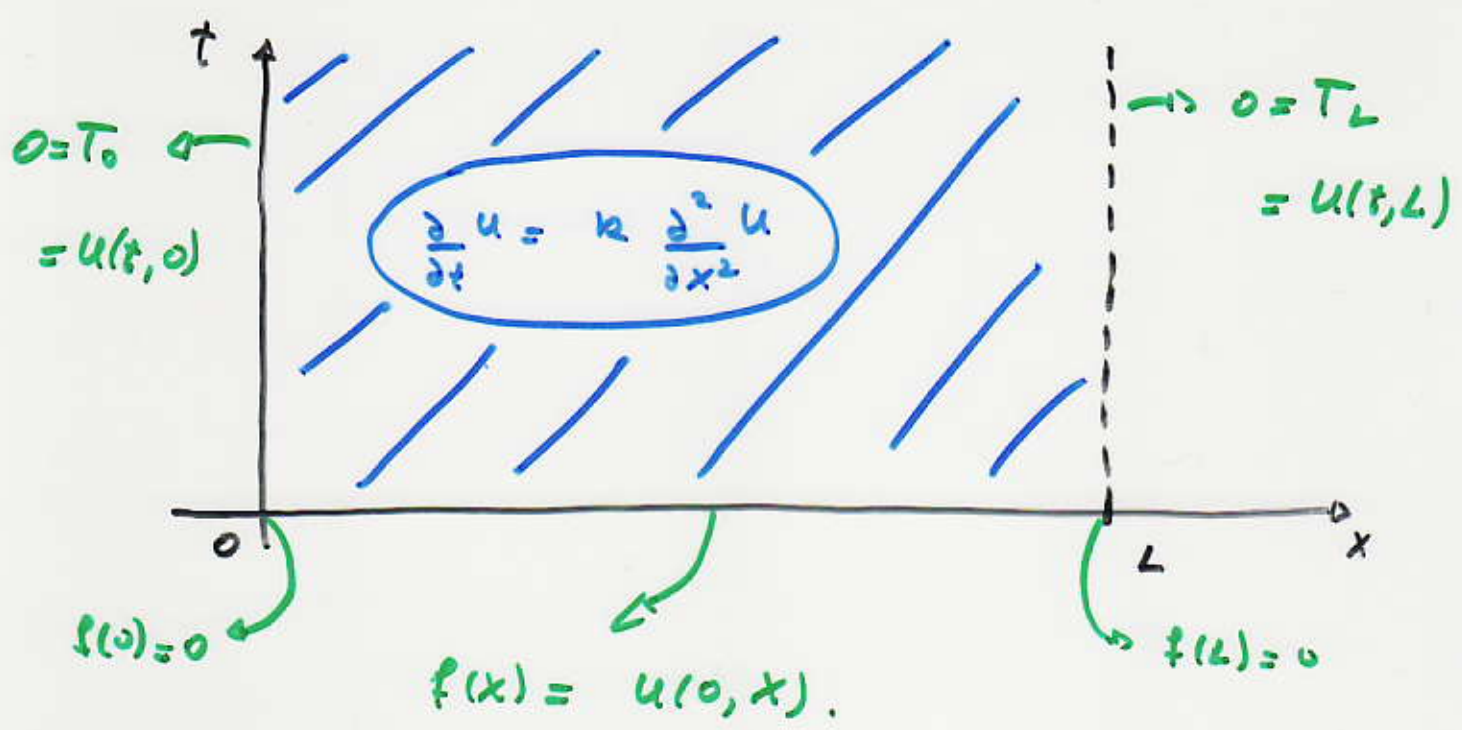 t
0 = T₀
= u(t,0)
∂/∂t u = k ∂²/∂x² u
0 = T_L
= u(t,L)
0
L
x
f(0)=0
f(x) = u(0,x).
f(L)=0